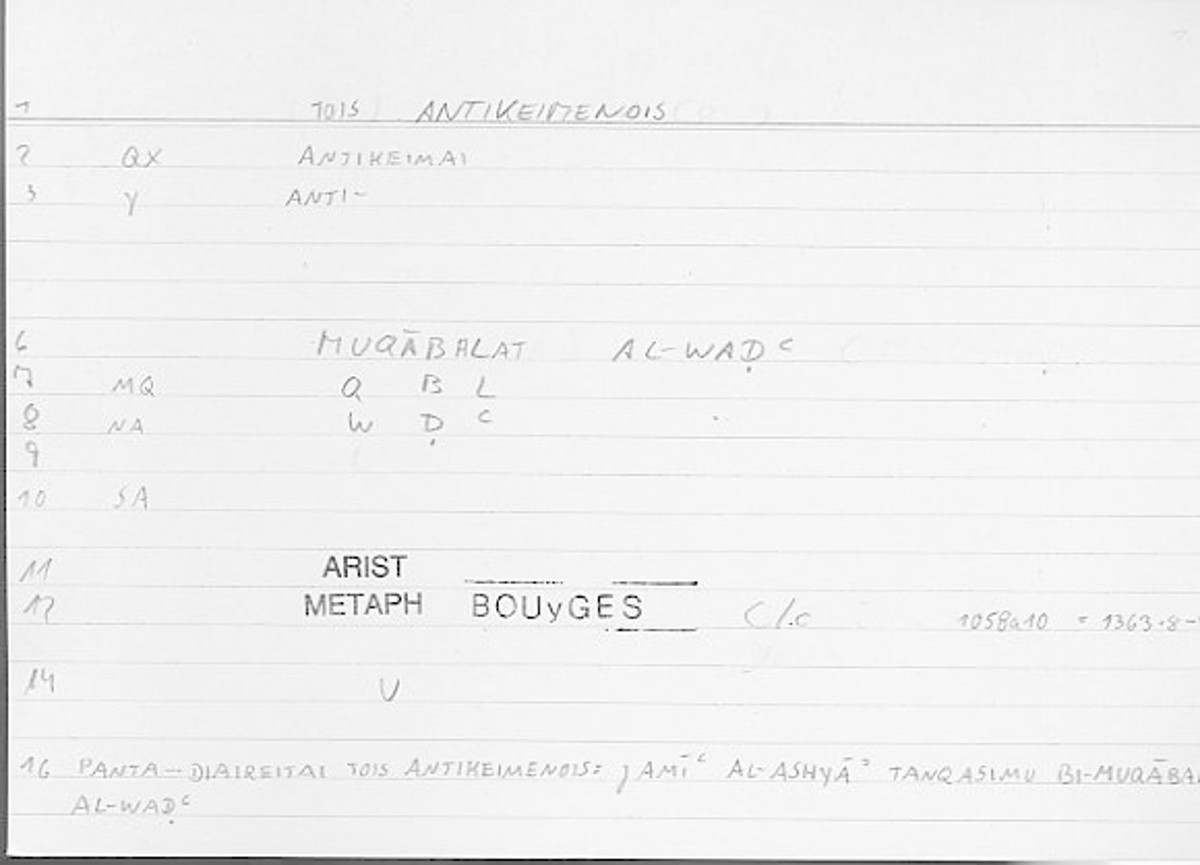 1 TOIS ANTIKEIMENOIS
2 QX ANTIKEIMAI
3 γ ANTI-
6 MUQĀBALAT AL-WAḌ ᶜ
7 MQ Q B L
8 NA W Ḍ ᶜ
9
10 SA
11 ARIST
12 METAPH BOUyGES C/.c 1058a10 = 1363.8-
14 V
16 PANTA-DIAIREITAI TOIS ANTIKEIMENOIS: JAMĪᶜ AL-ASHYĀʾ TANQASIMU BI-MUQĀBA
AL-WAḌᶜ